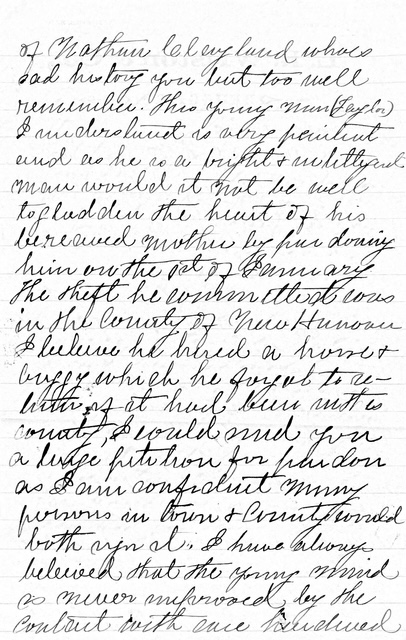 of Nathan Cleaveland whose
sad history you but too well
remember. This young man (Taylor)
I understand is very penitent
and as he is a bright &
man would it not be well
to gladden the heart of his
bereaved mother by pardoning
him on the 1st of January
The theft he committed was
in the County of New Hanover
I believe he hired a horse &
buggy which he forgot to re-
turn, if it had been in this
county, I could send you
a large petition for pardon
as I am confident many
persons in town & county would
both sign it. I have always
beleived that the young mind
is never improved by the
contact with one hardened